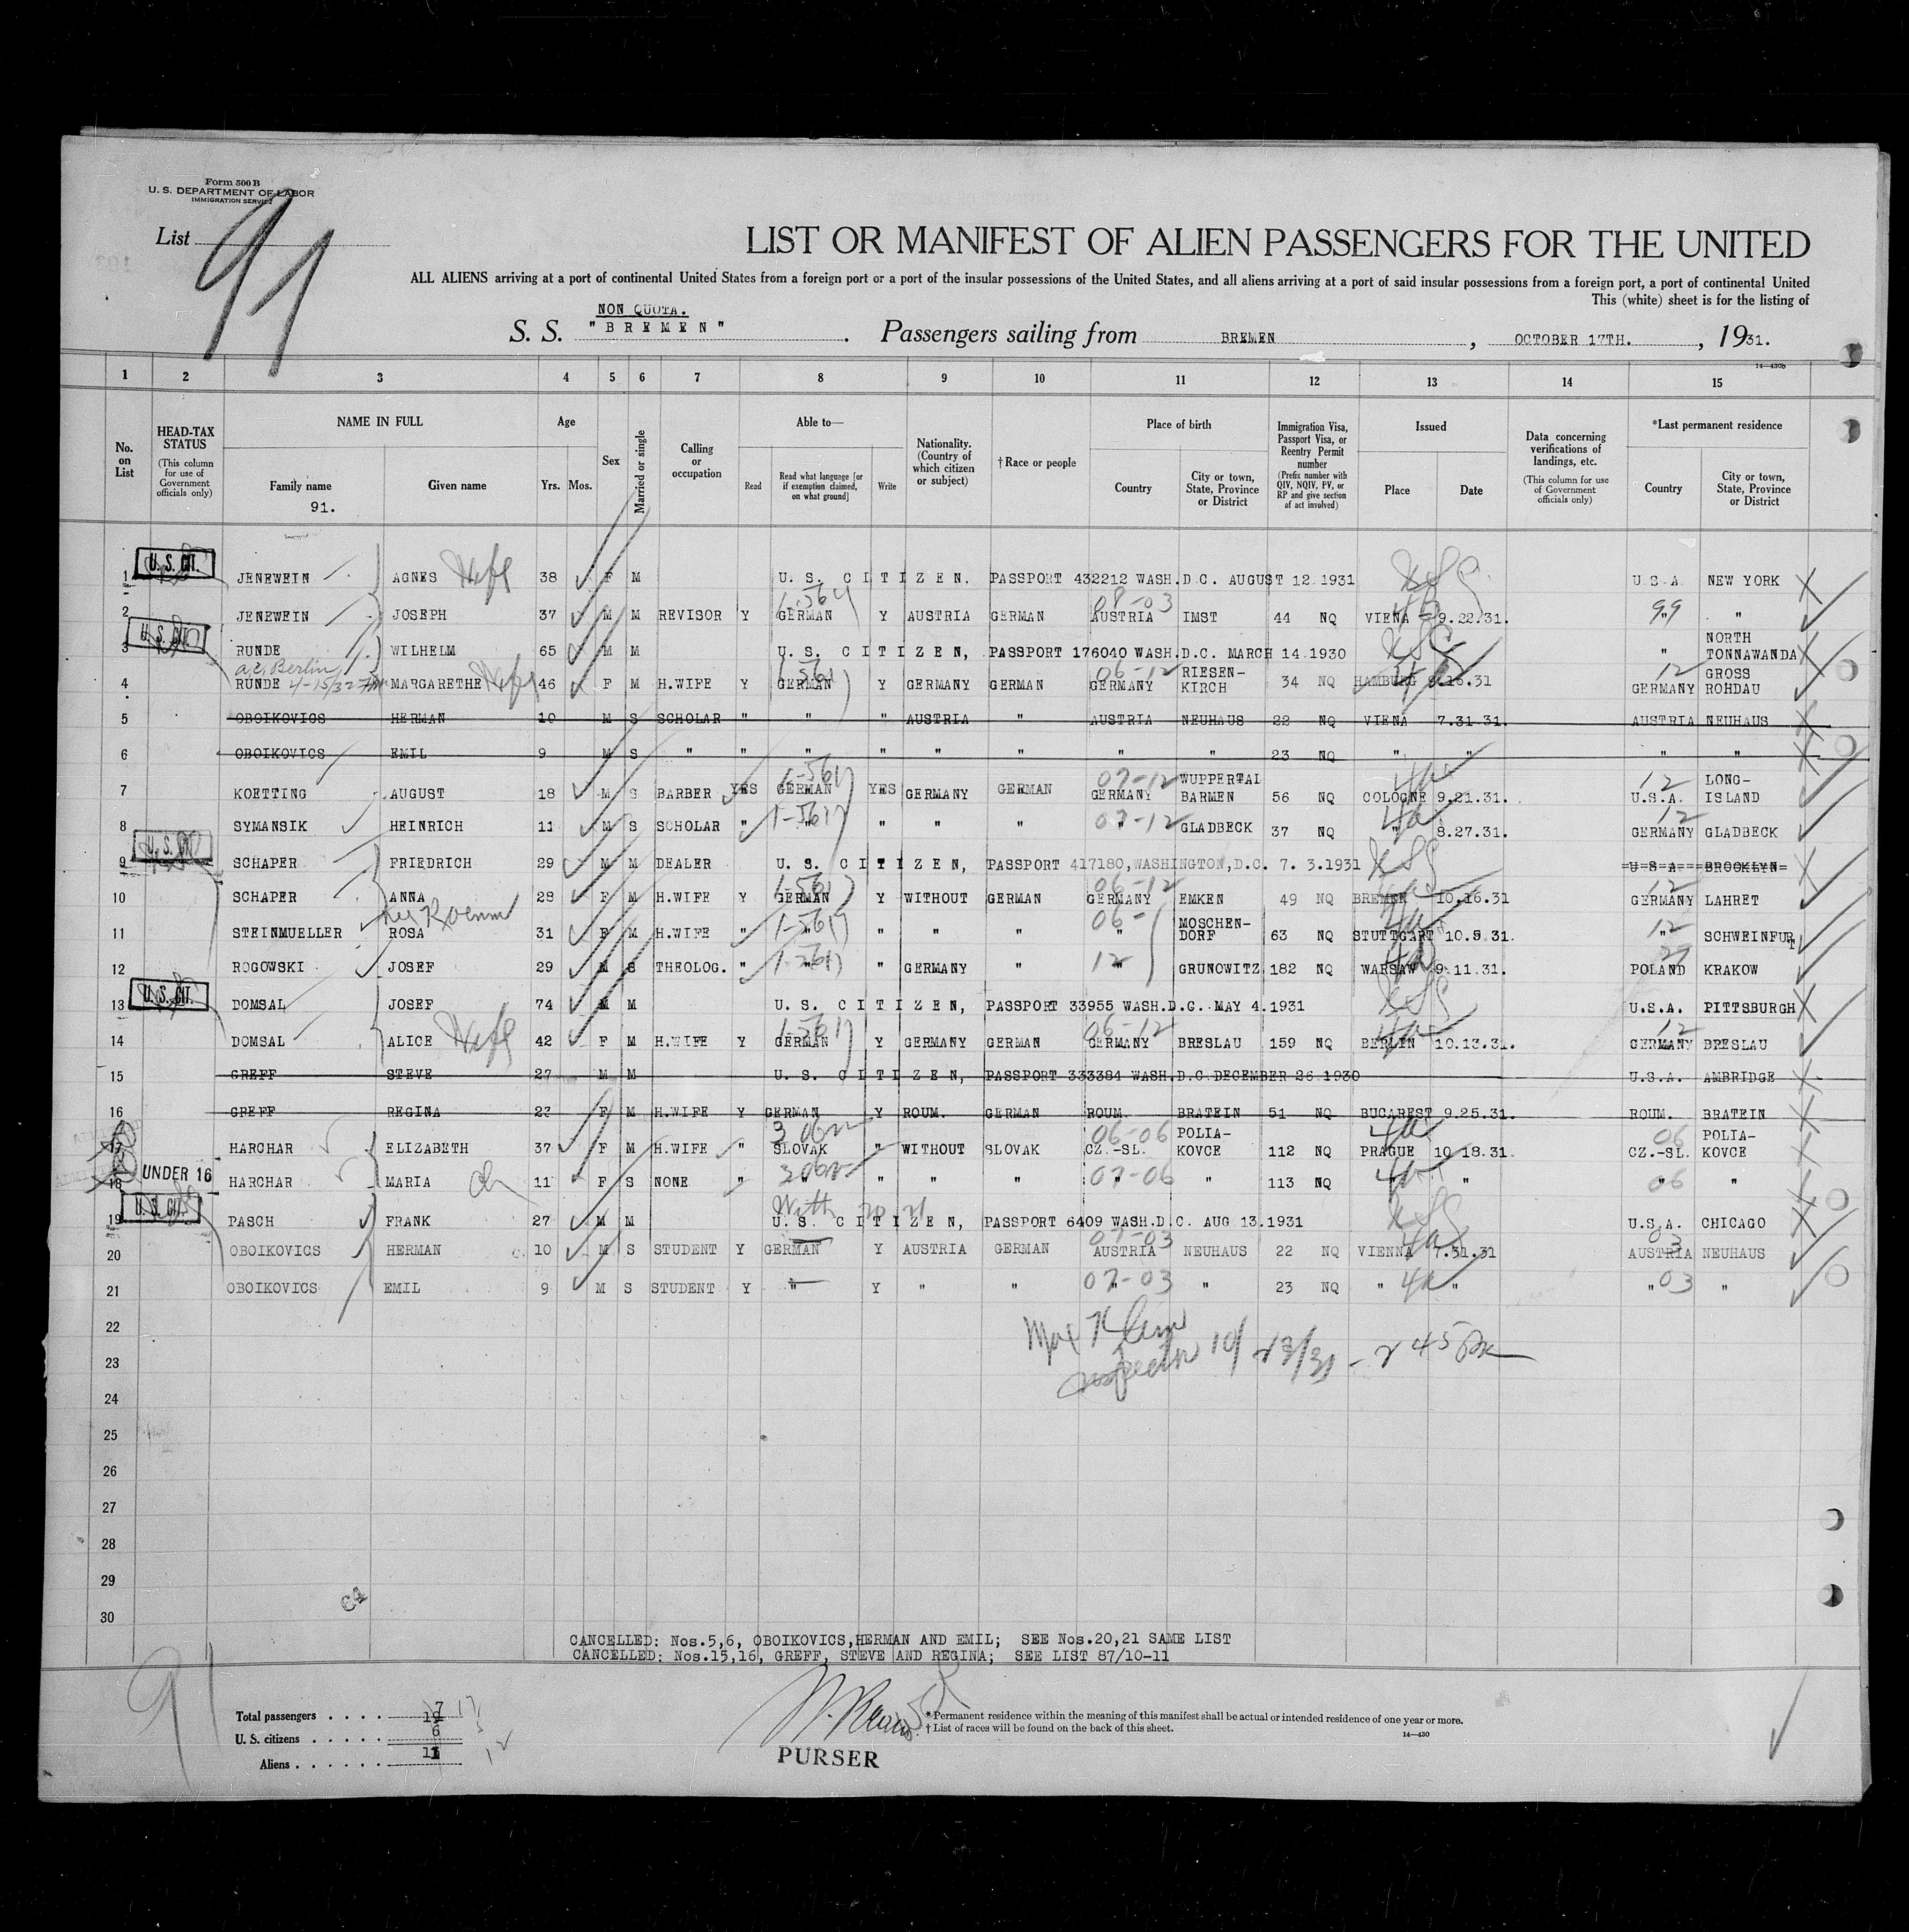 Form 500 B
U. S. DEPARTMENT OF LABOR
IMMIGRATION SERVICE
List 91
LIST OR MANIFEST OF ALIEN PASSENGERS FOR THE UNITED
ALL ALIENS arriving at a port of continental United States from a foreign port or a port of the insular possessions of the United States, and all aliens arriving at a port of said insular possessions from a foreign port, a port of continental United
This (white) sheet is for the listing of
NON QUOTA.
S. S. "BREMEN". Passengers sailing from BREMEN, OCTOBER 17TH., 1931.
14—430b
1 2 3 4 5 6 7 8 9 10 11 12 13 14 15
No. on List
HEAD-TAX STATUS (This column for use of Government officials only)
NAME IN FULL
Family name Given name
91.
Age
Yrs. Mos.
Sex
Married or single
Calling or occupation
Able to—
Read Read what language [or if exemption claimed, on what ground] Write
Nationality. (Country of which citizen or subject)
†Race or people
Place of birth
Country City or town, State, Province or District
Immigration Visa, Passport Visa, or Reentry Permit number (Prefix number with QIV, NQIV, PV, or RP and give section of act involved)
Issued
Place Date
Data concerning verifications of landings, etc. (This column for use of Government officials only)
*Last permanent residence
Country City or town, State, Province or District
U. S. CIT.
1 JENEWEIN AGNES 38 F M U. S. CITIZEN. PASSPORT 432212 WASH.D.C. AUGUST 12.1931 U.S.A. NEW YORK
1-561 08-03 99
2 JENEWEIN JOSEPH 37 M M REVISOR Y GERMAN Y AUSTRIA GERMAN AUSTRIA IMST 44 NQ VIENA 9.22.31. " "
U. S. CIT.
3 RUNDE WILHELM 65 M M U. S. CITIZEN, PASSPORT 176040 WASH.D.C. MARCH 14.1930 " NORTH TONNAWANDA
Berlin 4-15/32 1-561 06-12 12
4 RUNDE MARGARETHE 46 F M H.WIFE Y GERMAN Y GERMANY GERMAN GERMANY RIESEN-KIRCH 34 NQ HAMBURG 9.16.31 GERMANY GROSS ROHDAU
5 OBOIKOVICS HERMAN 10 M S SCHOLAR " " " AUSTRIA " AUSTRIA NEUHAUS 22 NQ VIENA 7.31.31. AUSTRIA NEUHAUS
6 OBOIKOVICS EMIL 9 M S " " " " " " " " 23 NQ " " " "
1-561 07-12 4a 12
7 KOETTING AUGUST 18 M S BARBER YES GERMAN YES GERMANY GERMAN GERMANY WUPPERTAL BARMEN 56 NQ COLOGNE 9.21.31. U.S.A. LONG-ISLAND
1-561 07-12 4a 12
8 SYMANSIK HEINRICH 11 M S SCHOLAR " " " " " " GLADBECK 37 NQ " 8.27.31. GERMANY GLADBECK
U. S. CIT.
9 SCHAPER FRIEDRICH 29 M M DEALER U. S. CITIZEN, PASSPORT 417180,WASHINGTON,D.C. 7. 3.1931 U S A BROOKLYN
1-561 06-12 12
10 SCHAPER ANNA 28 F M H.WIFE Y GERMAN Y WITHOUT GERMAN GERMANY EMKEN 49 NQ BREMEN 10.16.31 GERMANY LAHRET
1-561 06- 12
11 STEINMUELLER ROSA 31 F M H.WIFE " " " " " " MOSCHEN-DORF 63 NQ STUTTGART 10.5.31. " SCHWEINFURT
1-561 12
12 ROGOWSKI JOSEF 29 M S THEOLOG. " " " GERMANY " " GRUNOWITZ 182 NQ WARSAW 9.11.31. POLAND KRAKOW
U. S. CIT.
13 DOMSAL JOSEF 74 M M U. S. CITIZEN, PASSPORT 33955 WASH.D.C. MAY 4.1931 U.S.A. PITTSBURGH
1-561 06-12 4a 12
14 DOMSAL ALICE 42 F M H.WIFE Y GERMAN Y GERMANY GERMAN GERMANY BRESLAU 159 NQ BERLIN 10.13.31. GERMANY BRESLAU
15 GREFF STEVE 27 M M U. S. CITIZEN, PASSPORT 333384 WASH.D.C.DECEMBER 26.1930 U.S.A. AMBRIDGE
16 GREFF REGINA 23 F M H.WIFE Y GERMAN Y ROUM. GERMAN ROUM. BRATEIN 51 NQ BUCAREST 9.25.31. ROUM. BRATEIN
06-06 4a 06
17 HARCHAR ELIZABETH 37 F M H.WIFE " SLOVAK " WITHOUT SLOVAK CZ.-SL. POLIA-KOVCE 112 NQ PRAGUE 10.18.31. CZ.-SL. POLIA-KOVCE
UNDER 16
07-06 4a 06
18 HARCHAR MARIA 11 F S NONE " " " " " " 113 NQ " " " "
U. S. CIT.
With 20 21
19 PASCH FRANK 27 M M U. S. CITIZEN, PASSPORT 6409 WASH.D.C. AUG 13.1931 U.S.A. CHICAGO
07-03 4a 03
20 OBOIKOVICS HERMAN 10 M S STUDENT Y GERMAN Y AUSTRIA GERMAN AUSTRIA NEUHAUS 22 NQ VIENNA 7.31.31 AUSTRIA NEUHAUS
07-03 4a 03
21 OBOIKOVICS EMIL 9 M S STUDENT Y " Y " " " " 23 NQ " " " "
22
Inspector 10/23/31 - 2 45 PM
23
24
25
26
27
28
29
30
CANCELLED: Nos.5,6, OBOIKOVICS,HERMAN AND EMIL; SEE Nos.20,21 SAME LIST
CANCELLED: Nos.15,16, GREFF, STEVE AND REGINA; SEE LIST 87/10-11
91
Total passengers . . . . 17
U. S. citizens . . . . . 6 5
Aliens . . . . . . 11 12
PURSER
* Permanent residence within the meaning of this manifest shall be actual or intended residence of one year or more.
† List of races will be found on the back of this sheet.
14—430